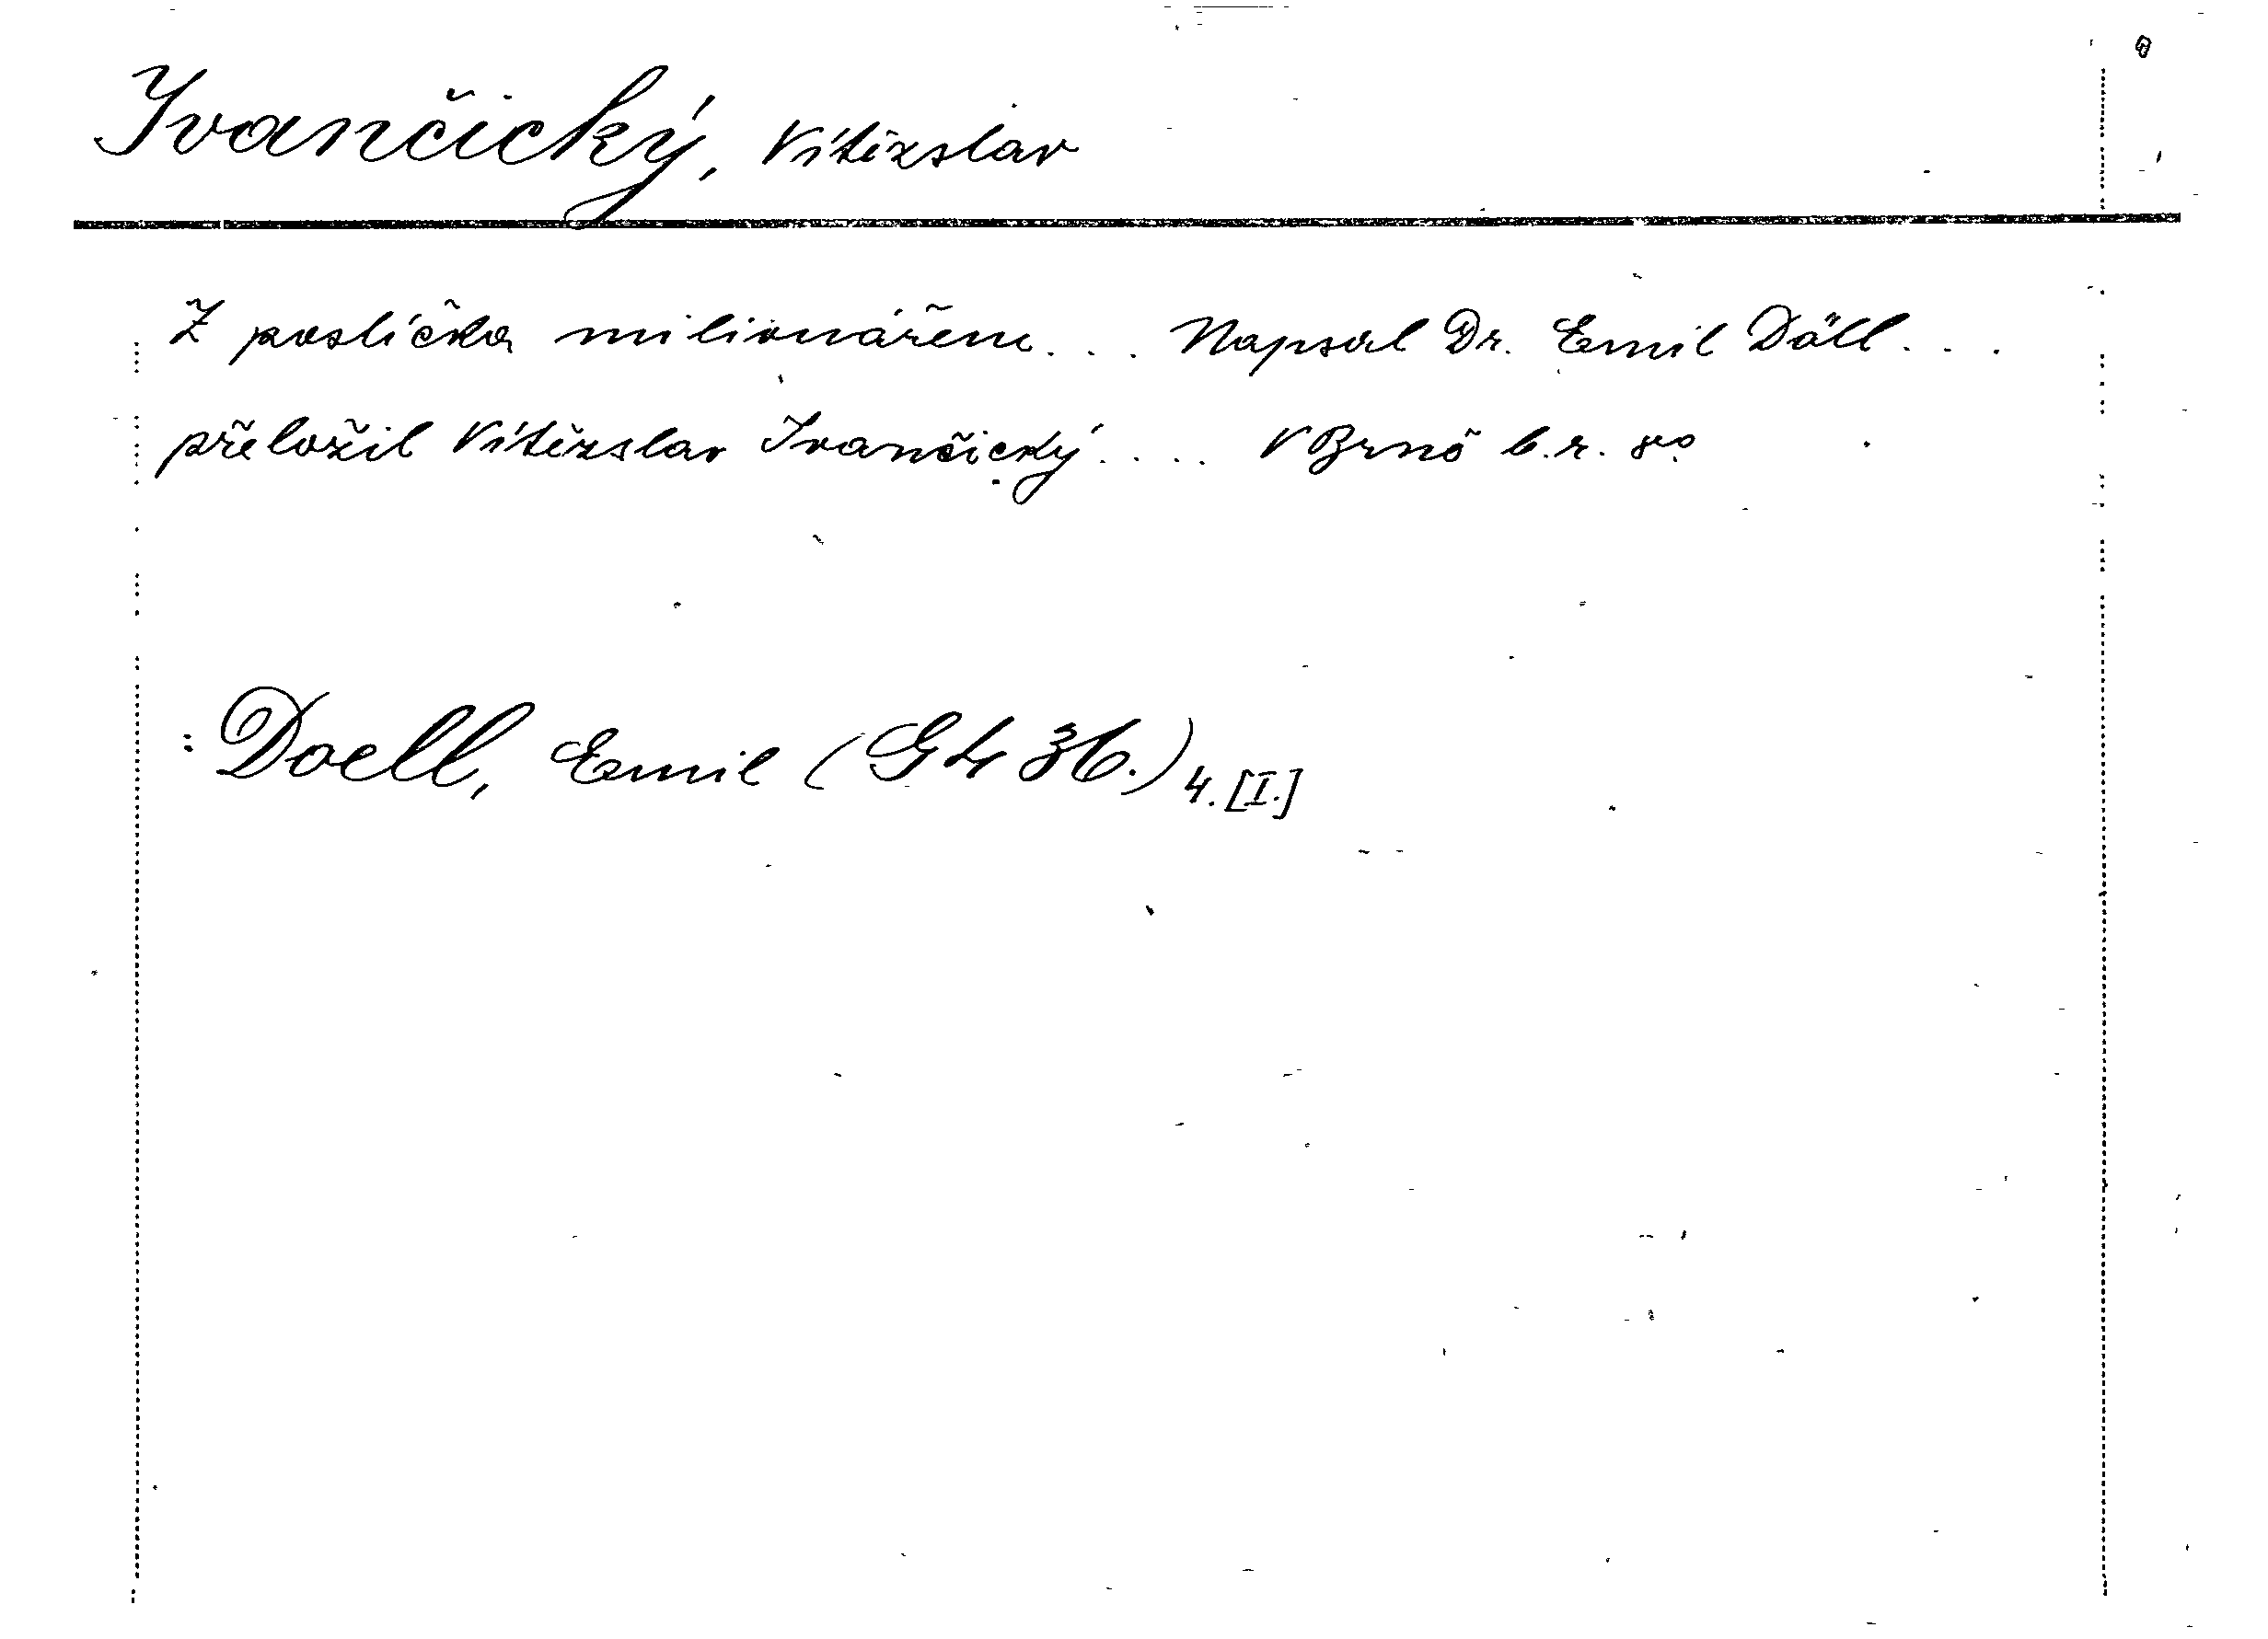 Ivančický, Vítězslav
Z poslíčka milionářem... Napsal Dr. Emil Döll...
přeložil Vítězslav Ivančický.... V Brně b.r. 8vo
: Doell, Emil (G 4 36.) 4. [I.]